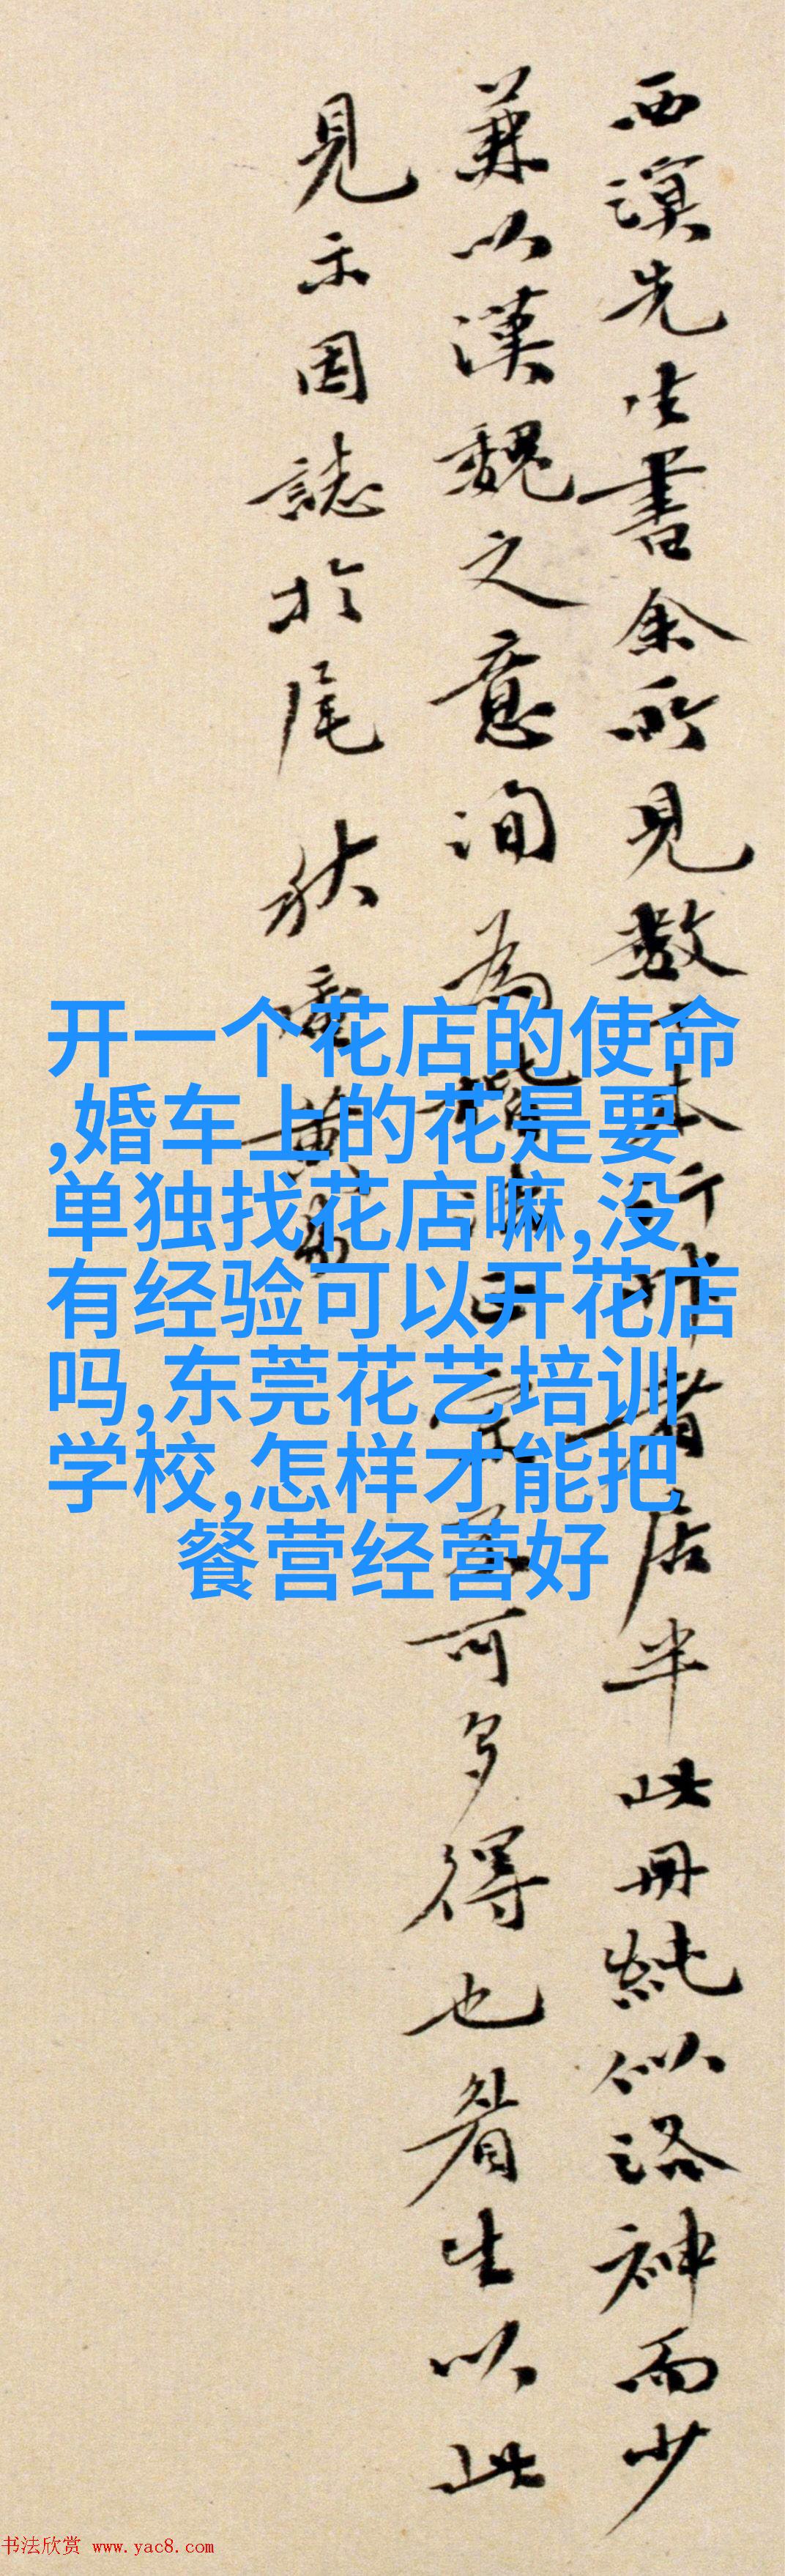 西溟先生書余所見數十本行者居半此冊純似洛神而少
兼以漢魏之意洵為楷法正宗不可多得也生以此
見示因誌於尾 秋盦黃易
开一个花店的使命
,婚车上的花是要
单独找花店嘛,没
有经验可以开花店
吗,东莞花艺培训
学校,怎样才能把
餐营经营好
书法欣赏 www.yac8.com